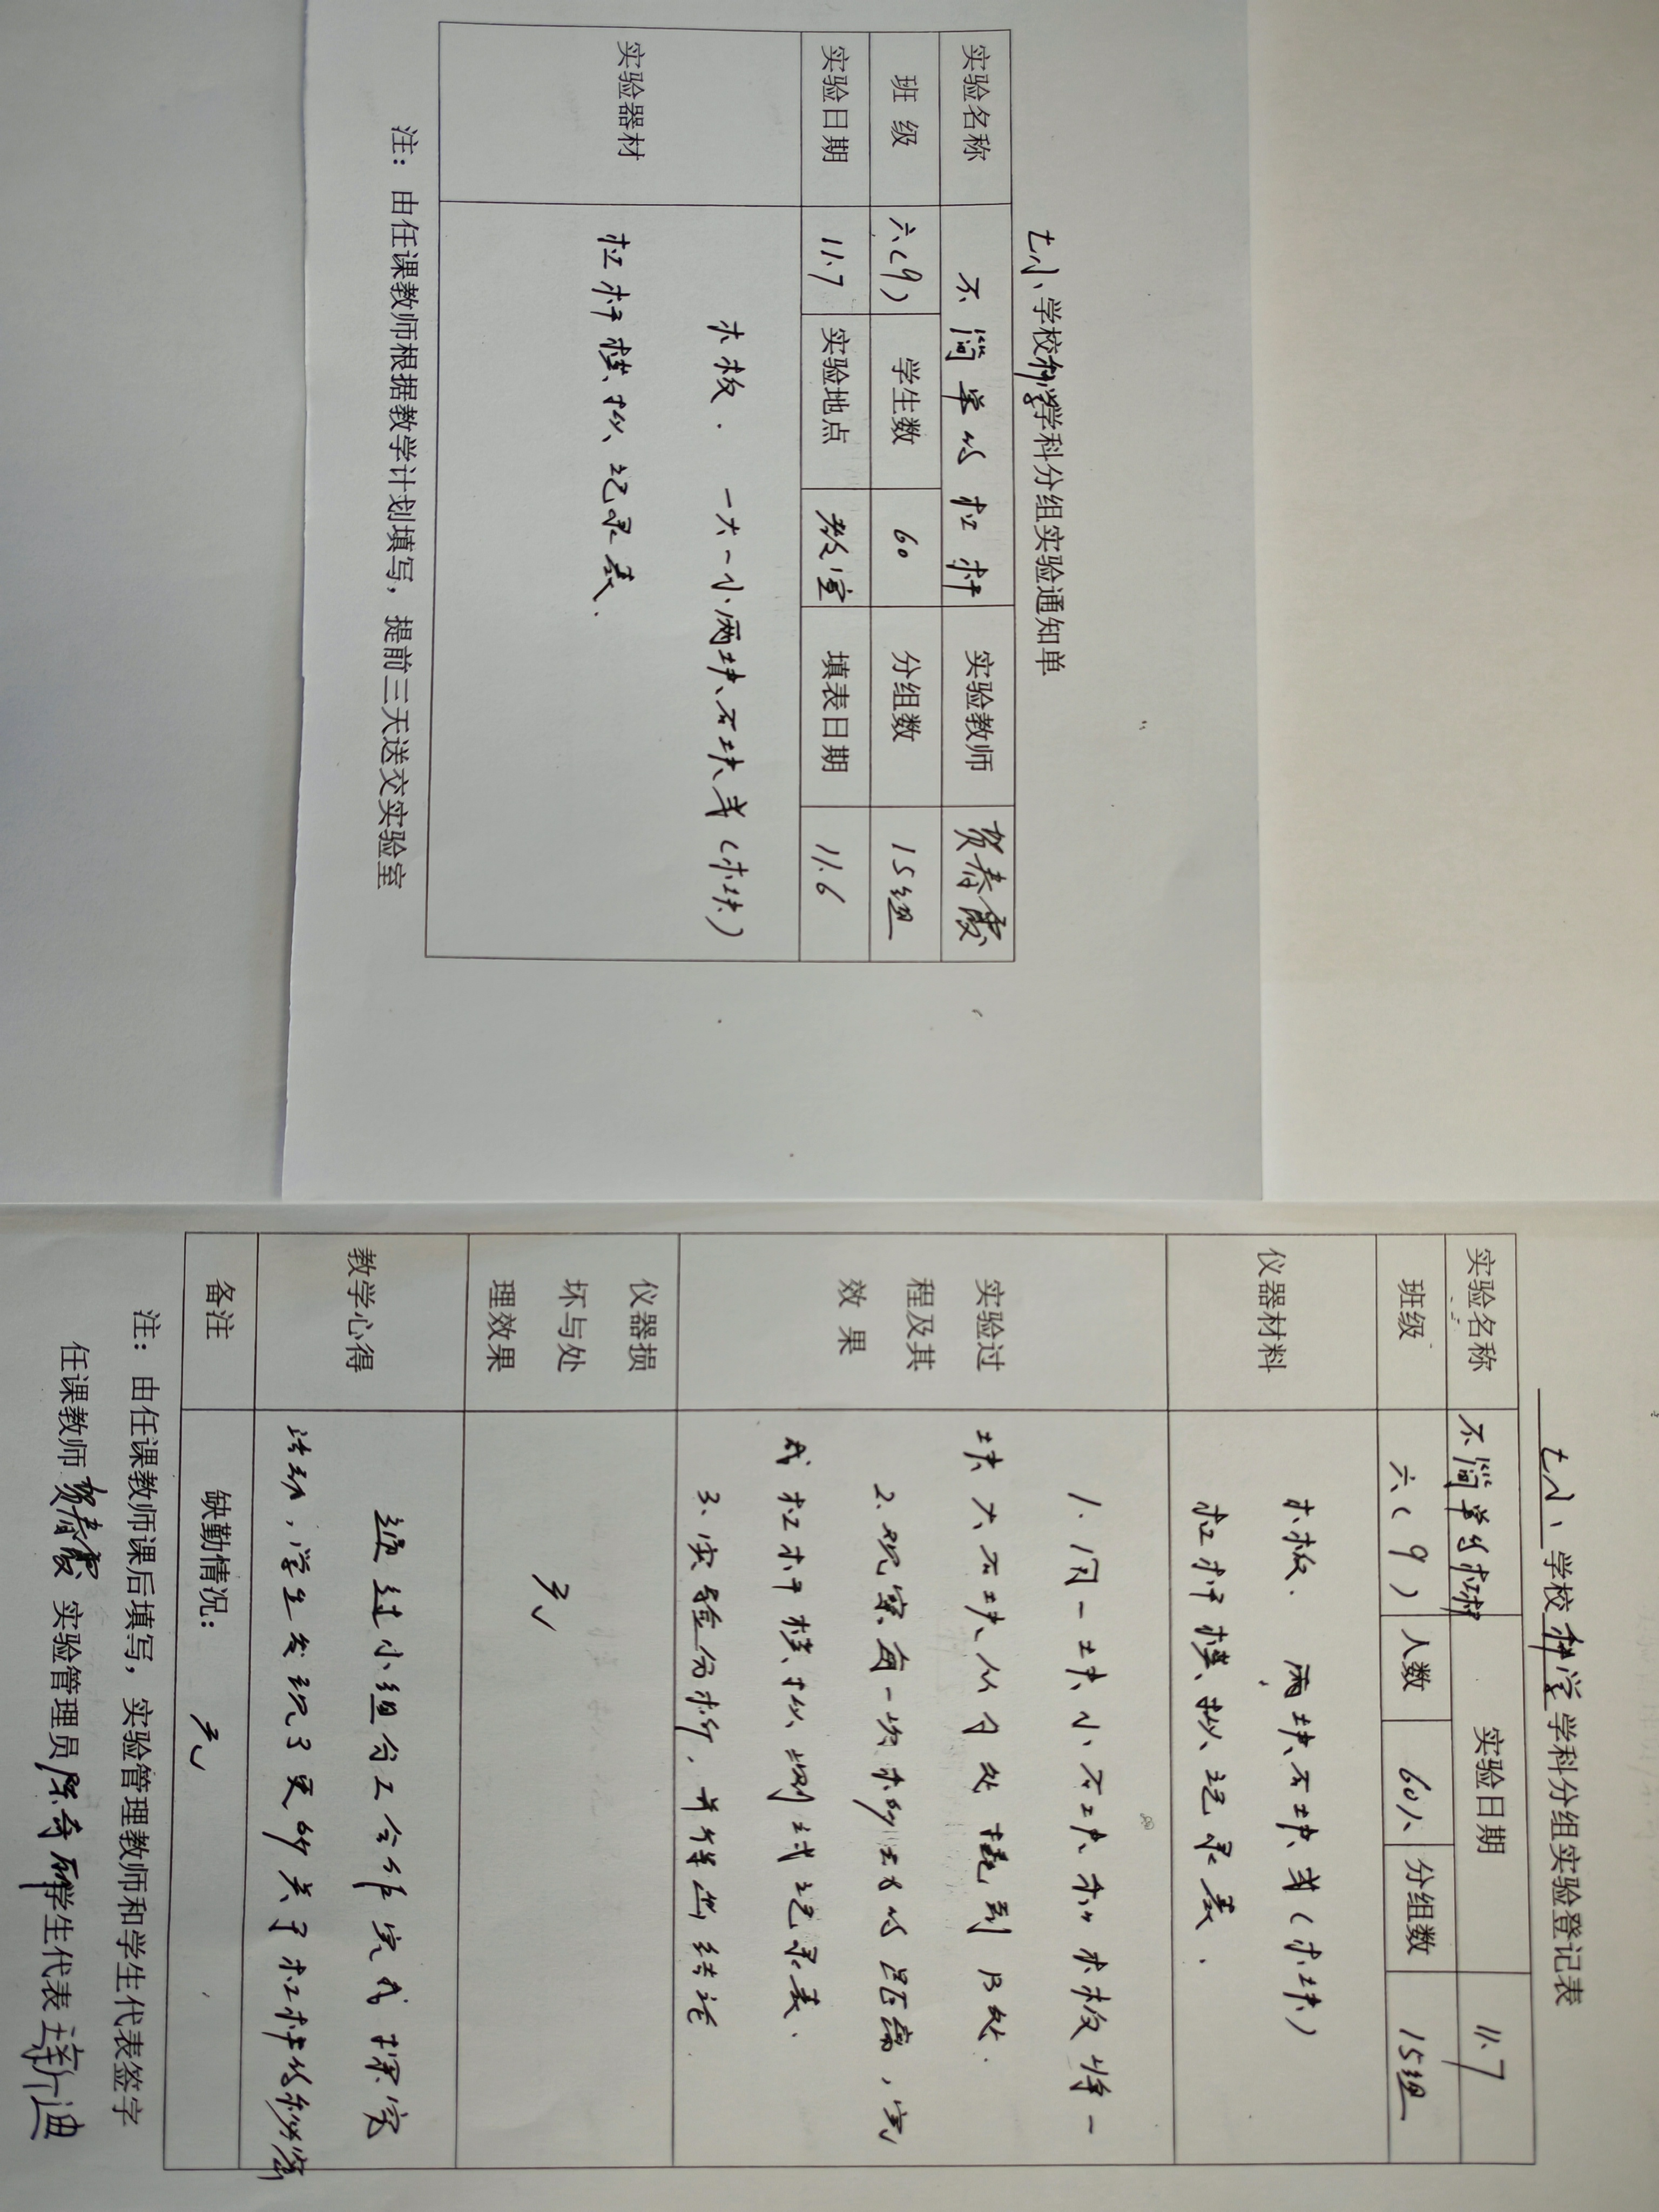 七小学校科学学科分组实验通知单
实验名称 不简单的杠杆 实验教师 贺春霞
班 级 六(9) 学生数 60 分组数 15组
实验日期 11.7 实验地点 教室 填表日期 11.6
实验器材
木板. 一大一小两块石块或(木块)
杠杆模拟记录表.
注: 由任课教师根据教学计划填写, 提前三天送交实验室
七小学校科学学科分组实验登记表
实验名称 不简单的杠杆 实验日期 11.7
班级 六(9) 人数 60人 分组数 15组
仪器材料
木板. 两块石块或(木块)
杠杆模拟记录表.
实验过
程及其
效 果
1.用一块小石块和木板将一
块大石块从A处撬到B处.
2.观察每一次移动的距离,完
成杠杆模拟测试记录表.
3.实验分析,并得出结论.
仪器损
坏与处
理效果
无
教学心得
通过小组分工合作完成探究
活动,学生发现了更多关于杠杆的秘密
备注 缺勤情况: 无
注: 由任课教师课后填写, 实验管理教师和学生代表签字
任课教师 贺春霞 实验管理员 陈 学生代表